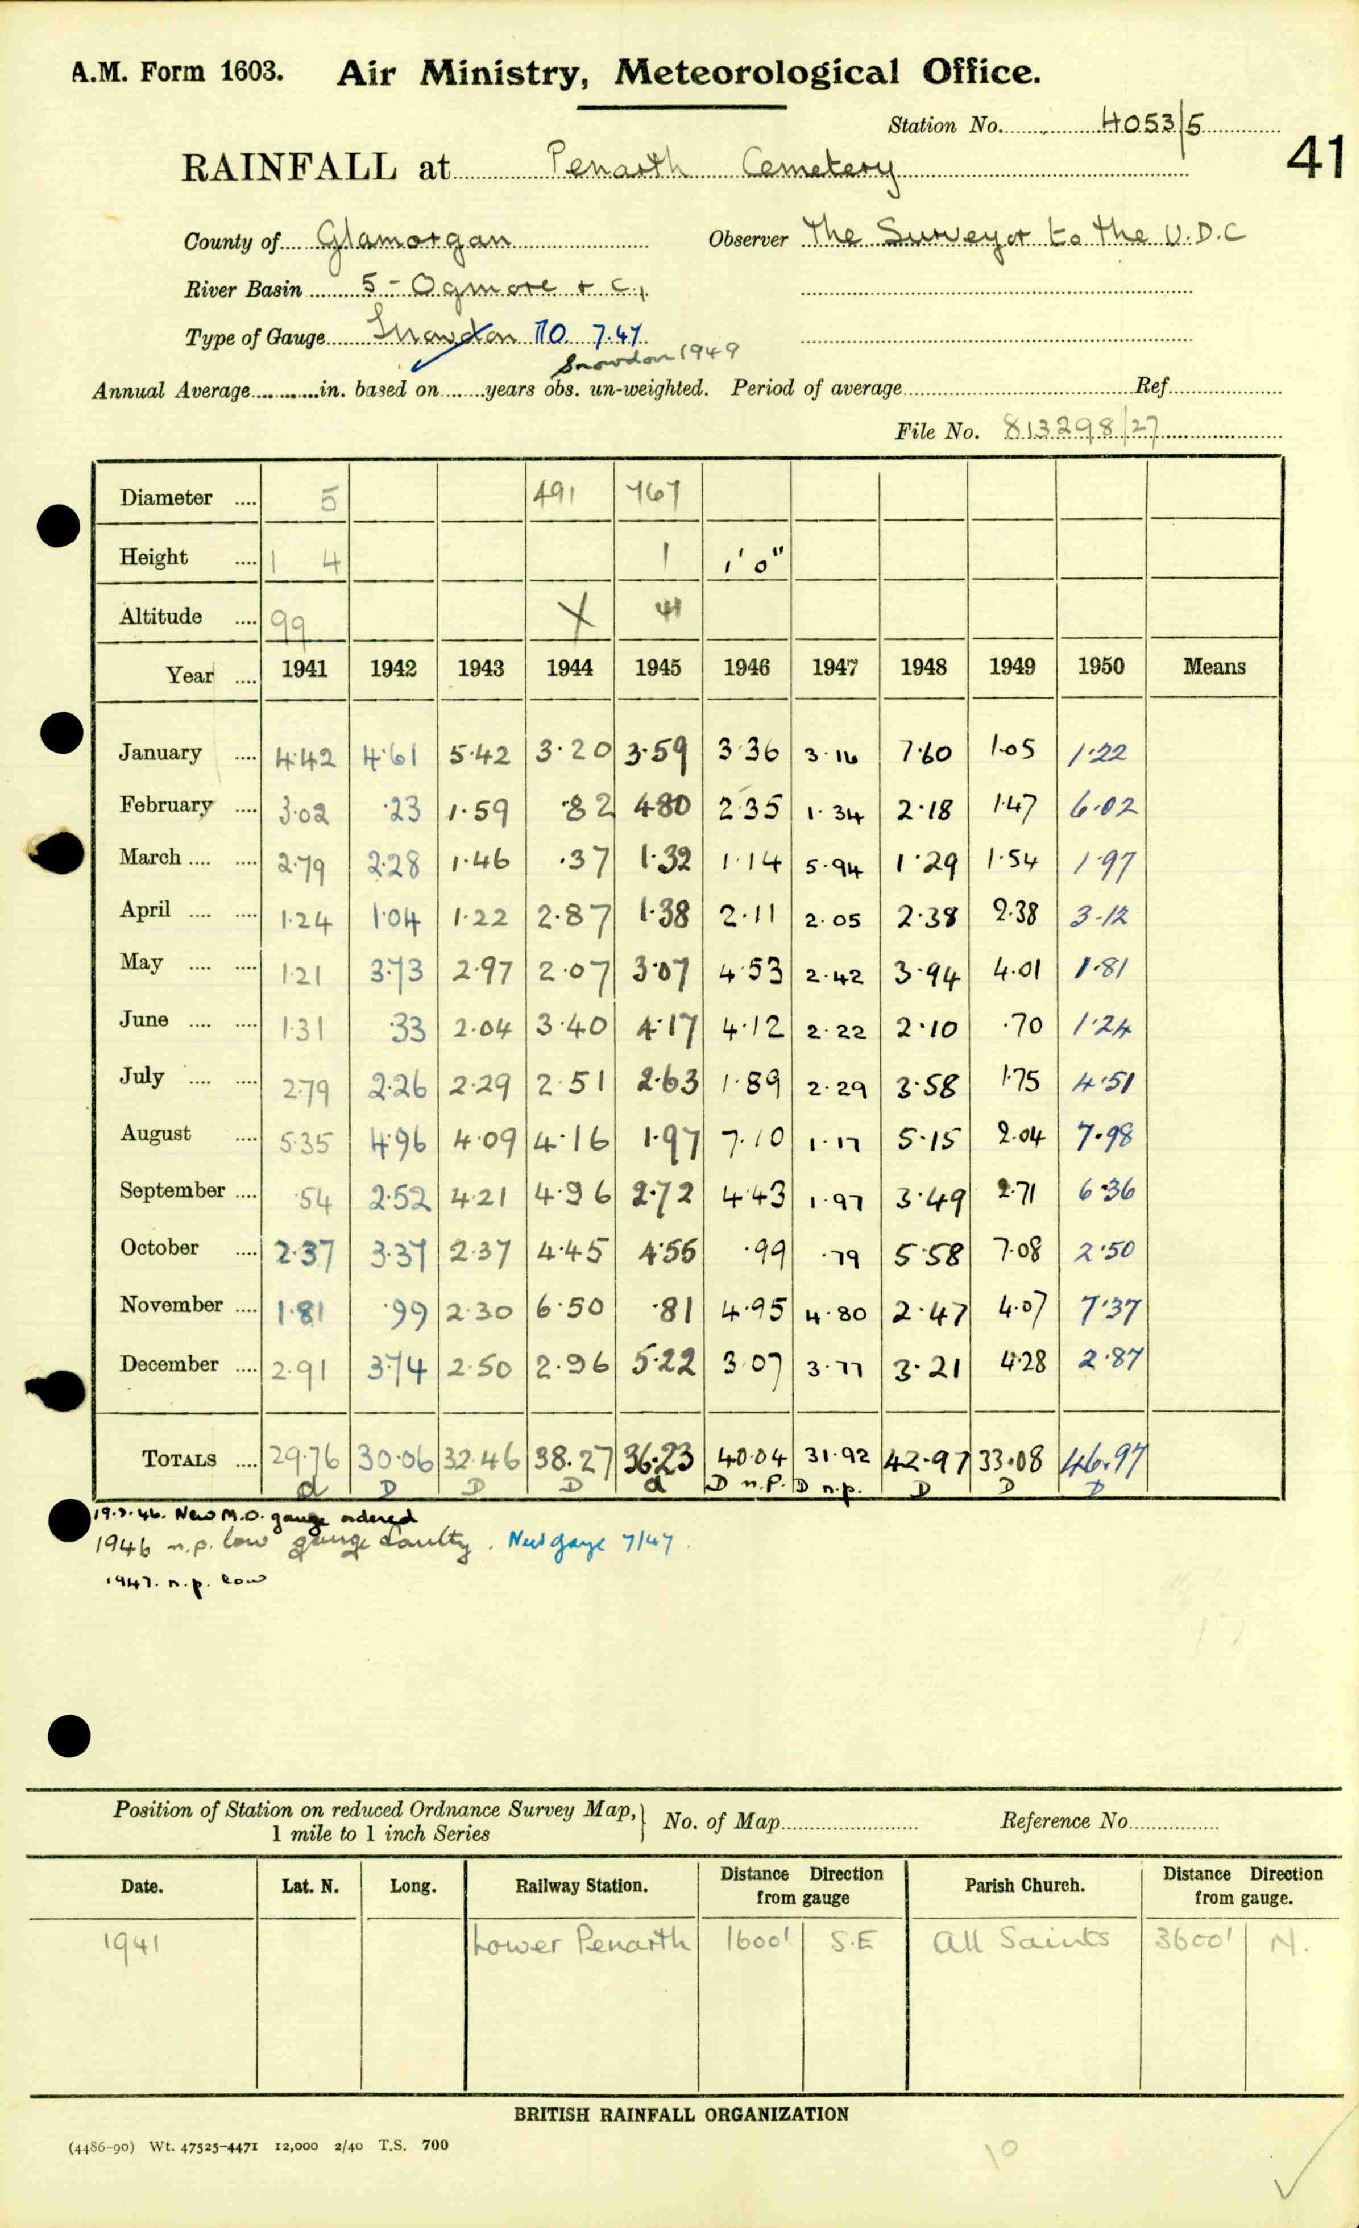 A.M. Form 1603. Air Ministry, Meteorological Office.
Station No. 4053/5
41
RAINFALL at Penarth Cemetery
County of Glamorgan Observer The Surveyor to the U.D.C
River Basin 5 - Ogmore & c.
Type of Gauge Snowdon MO 7.47
Snowdon 1949
Annual Average in. based on years obs. un-weighted. Period of average Ref
File No. 813298/27
Diameter 5 491 767
Height 1 4 1 1' 0"
Altitude 99 X 41
Year 1941 1942 1943 1944 1945 1946 1947 1948 1949 1950 Means
January 4.42 4.61 5.42 3.20 3.59 3.36 3.16 7.60 1.05 1.22
February 3.02 .23 1.59 .82 4.80 2.35 1.34 2.18 1.47 6.02
March 2.79 2.28 1.46 .37 1.32 1.14 5.94 1.29 1.54 1.97
April 1.24 1.04 1.22 2.87 1.38 2.11 2.05 2.38 2.38 3.12
May 1.21 3.73 2.97 2.07 3.07 4.53 2.42 3.94 4.01 1.81
June 1.31 .33 2.04 3.40 4.17 4.12 2.22 2.10 .70 1.24
July 2.79 2.26 2.29 2.51 2.63 1.89 2.29 3.58 1.75 4.51
August 5.35 4.96 4.09 4.16 1.97 7.10 1.17 5.15 2.04 7.98
September .54 2.52 4.21 4.96 2.72 4.43 1.97 3.49 2.71 6.36
October 2.37 3.37 2.37 4.45 4.55 .99 .79 5.58 7.08 2.50
November 1.81 .99 2.30 6.50 .81 4.95 4.80 2.47 4.07 7.37
December 2.91 3.74 2.50 2.96 5.22 3.07 3.77 3.21 4.28 2.87
TOTALS 29.76 30.06 32.46 38.27 36.23 40.04 31.92 42.97 33.08 46.97
d D D D d D n.p. D n.p. D D D
19.7.46. New M.O. gauge ordered
1946 n.p. low gauge faulty. New gauge 7/47.
1947. n.p. low
Position of Station on reduced Ordnance Survey Map, No. of Map Reference No.
1 mile to 1 inch Series
Date. Lat. N. Long. Railway Station. Distance Direction from gauge Parish Church. Distance Direction from gauge.
1941 Lower Penarth 1600' S.E All Saints 3600' N.
BRITISH RAINFALL ORGANIZATION
(4486-90) Wt. 47525-4471 12,000 2/40 T.S. 700
10